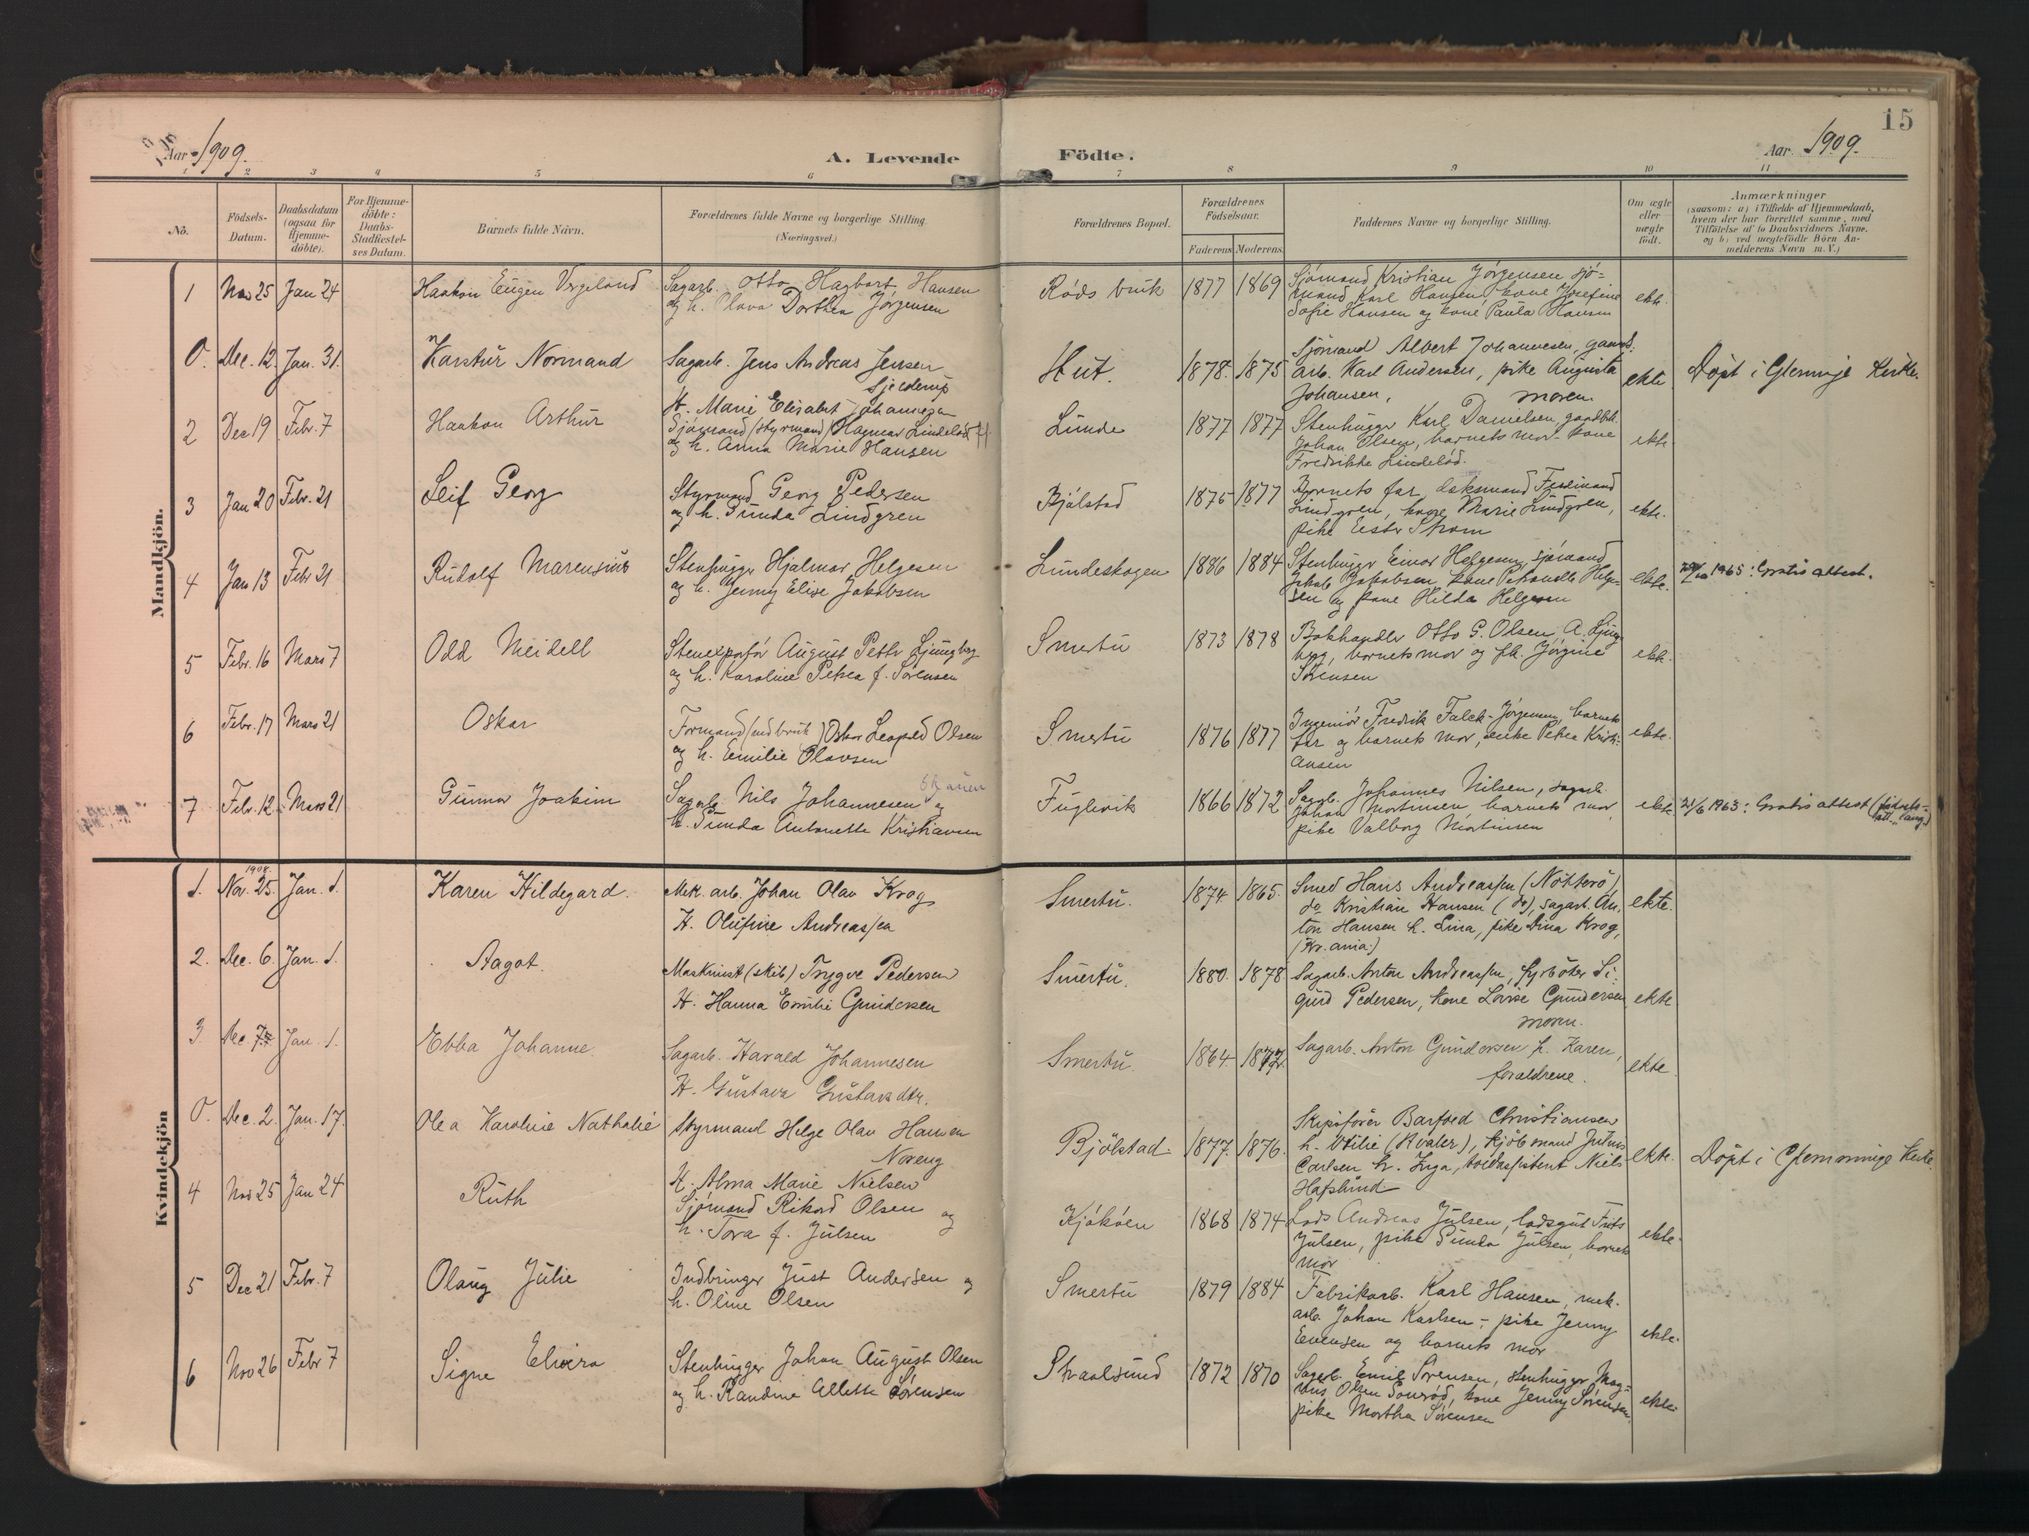 15
Aar 1909.
A. Levende Födte.
Aar 1909.
1 2 3 4 5 6 7 8 9 10 11
No.
Födsels-Datum.
Daabsdatum (ogsaa for Hjemme-döbte).
For Hjemme-döbte: Daabs-Stadfæstel-ses Datum.
Barnets fulde Navn.
Forældrenes fulde Navne og borgerlige Stilling. (Næringsvei.)
Forældrenes Bopæl.
Forældrenes Födselsaar.
Faderens Moderens
Faddernes Navne og borgerlige Stilling.
Om ægte eller uægte födt.
Anmærkninger
(saasom: a) i Tilfælde af Hjemmedaab,
hvem der har forrettet samme, med
Tilföielse af to Daabsvidners Navne.
og b) ved uægtefödte Börn An-
melderens Navn m. V.)
Mandkjön.
1 Nov 25 Jan 24 Haakon Eugen Vergeland
Sagarb. Otto Hagbart Hansen
og h. Olava Dorthea Jørgensen
Røds bruk 1877 1869
Sjømand Kristian Jørgensen sjø-
mand Karl Hansen, kone Josefine
Sofie Hansen og kone Paula Hansen
ekte.
O. Dec. 12 Jan. 31. Karstur Normand
Sagarb. Jens Andreas Jensen
Gjelderup
H. Marie Elisabet Johannesen
Hut. 1878. 1875
Sjømand Albert Johannesen, gaard.
arb. Karl Andersen, pike Augusta
Johansen, moren
ekte Døpt i Glemminge Kirke.
2 Dec 19 Febr. 7 Haakon Arthur
Sjømand (styrmand) Hagmar Lindelød
og h. Anna Marie Hansen
Lunde 1877 1877
Stenhugger Karl Danielsen, gaardbr.
Johan Olsen, barnets mor - kone
Fredrikke Lindelød.
ekte.
3 Jan 20 Febr. 21 Leif Georg
Styrmand Georg Pedersen
og h. Gunda Lindgren
Bjølstad 1875 1877
Barnets far, daksmand Ferdinand
Lindgren, kone Marie Lindgren,
pike Ester Strøm
ekte.
4 Jan 13 Febr 21 Rudolf Marensius
Stenhugger Hjalmar Helgesen
og h. Jenny Elise Jakobsen
Lundeskogen 1886 1884
Stenhugger Einar Helgesen, sjømand
Jakob Jakobsen, kone Petronelle Helge-
sen og kone Hilda Helgesen
ekte. 1965: Gratis attest.
5 Febr. 16 Mars 7 Odd Meidell
Stenexportør August Peter Ljungberg
og h. Karoline Petrea f. Sørensen
Smertu 1873 1878
Bokhandler Otto G. Olsen, A. Ljung-
berg, barnets mor og fr. Jørgine
Sørensen
ekte.
6 Febr. 17 Mars 21 Oskar
Formand (ved bruk) Oskar Leopold Olsen
og h. Emilie Olavsen
Smertu 1876 1877
Ingeniør Fredrik Falck-Jørgensen, barnets
far og barnets mor, enke Petrea Kristi-
ansen
ekte.
7 Febr. 12 Mars 21 Gunnar Joakim
Skauen
Sagarb. Nils Johannesen og
h. Gunda Antonette Kristiansen
Fuglevik 1866 1872
Sagarb. Johannes Nilsen, sagarb.
Johan Martinsen barnets mor,
pike Valborg Martinsen
ekte 21/6 1963: Gratis attest
Kvindekjön
1. 1908. Nov. 25. Jan. 1. Karen Hildegard.
Mek. arb. Johan Olav Krog
H. Olufine Andreassen
Smertu. 1874 1865.
Smed Hans Andreassen (Nøtterø)
do Kristian Hansen (do), sagarb. An-
ton Hansen h. Lina, pike Dina Krog,
(Kr.ania.)
ekte.
2. Dec. 6. Jan. 1. Aagot.
Maskinist (skib) Trygve Pedersen
H. Hanna Emilie Gundersen
Smertu. 1880. 1878.
Sagarb. Anton Andreassen, fyrbøter Si-
gurd Pedersen, kone Lovise Gundersen
moren.
ekte
3. Dec 7 Jan. 1. Ebba Johanne.
Sagarb. Harald Johannesen
H. Gustava Gustavsdtr.
Smertu. 1864.
Sagarb. Anton Gundersen h. Karen,
foraldrene.
ekte.
O. Dec. 2. Jan. 17. Olea Karoline Nathalie
Styrmand Helge Olav Hansen
Noreng
H. Alma Marie Nielsen
Bjølstad 1877. 1876.
Skipsfører Barfoed Christiansen
h. Otilie (Hvaler), kjøbmand Julius
Carlsen h. Inga, toldassistent Niels
Hafslund
ekte. Døpt i Glemminge Kirke
4 Nov 25 Jan 24 Ruth
Sjømand Rikard Olsen og
h. Tora f. Julsen
Kjøkøen 1868 1874
Lods Andreas Julsen, lodsgut Frits
Julsen, pike Gunda Julsen, barnets
mor
ekte.
5 Dec 21 Febr. 7 Olaug Julie
Indbringer Just Andersen og
h. Oline Olsen
Smertu 1879 1884
Fabrikarb. Karl Hansen, mek.
arb. Johan Karlsen - pike Jenny
Evensen og barnets mor
ekte.
6 Nov 26 Febr 7 Signe Elvira
Stenhugger Johan August Olsen
og h. Randine Allette Sørensen
Straalsund 1872 1870
Sagarb. Emil Sørensen, stenhugger Mag-
nus Olsen Sonrød, kone Jenny Sørensen,
pike Martha Sørensen
ekte.